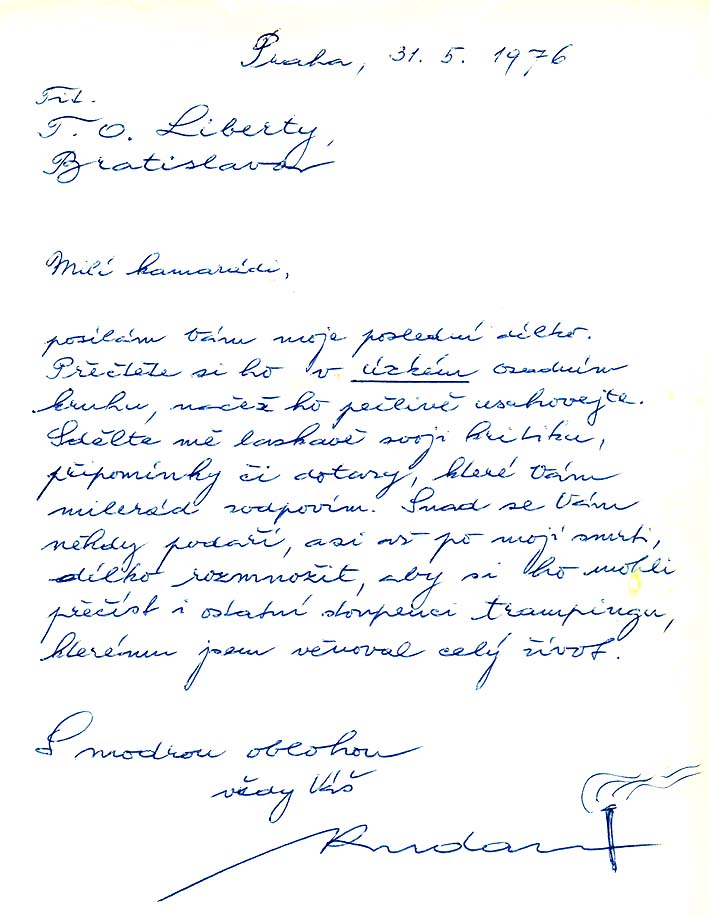 Praha, 31. 5. 1976
Tit.
T. O. Liberty,
Bratislava
Milí kamarádi,
posílám Vám moje poslední dílko.
Přečtěte si ho v úzkém osadním
kruhu, načež ho pečlivě uschovejte.
Sdělte mě laskavě svoji kritiku,
připomínky či dotazy, které Vám
milerád zodpovím. Snad se Vám
někdy podaří, asi až po mojí smrti,
dílko rozmnožit, aby si ho mohli
přečíst i ostatní stoupenci trampingu,
kterému jsem věnoval celý život.
S modrou oblohou
vždy Váš